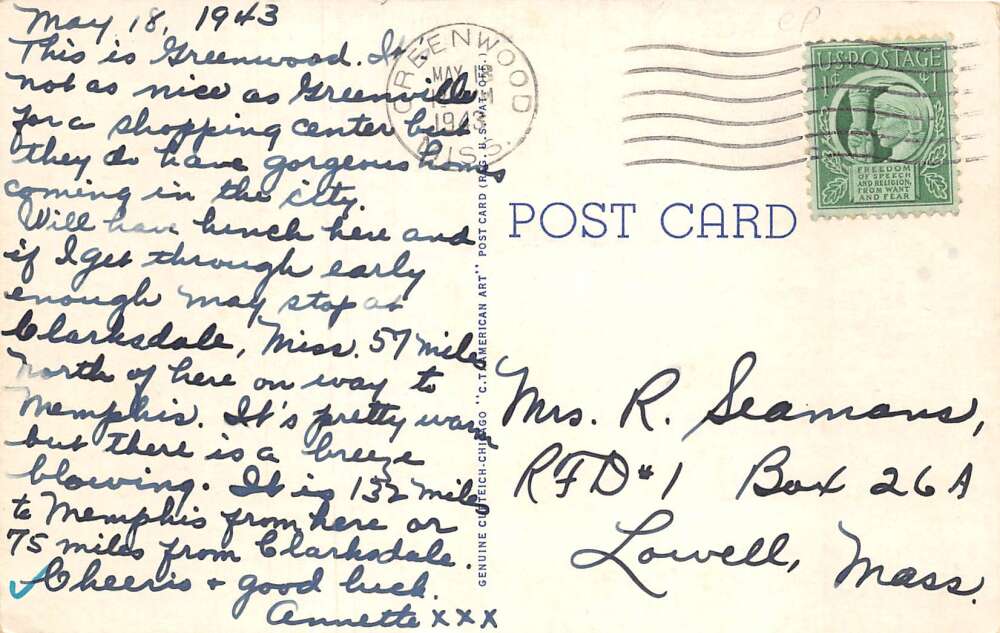 May 18, 1943
This is Greenwood. It's
not as nice as Greenville
for a shopping center but
they do have gorgeous homes
coming in the city.
Will have lunch here and
if I get through early
enough may stop at
Clarksdale, Miss. 57 miles
north of here on way to
Memphis. It's pretty warm
but there is a breeze
blowing. It is 132 miles
to Memphis from here or
75 miles from Clarksdale.
Cheerio & good luck.
Annette xxx
GREENWOOD
MAY 18
1943
MISS.
U.S. POSTAGE
1¢ 1
FREEDOM
OF SPEECH
AND RELIGION,
FROM WANT
AND FEAR
POST CARD
GENUINE CURTEICH-CHICAGO "C.T. AMERICAN ART" POST CARD (REG. U.S. PAT. OFF.)
Mrs. R. Seamans,
RFD #1 Box 26A
Lowell, Mass.